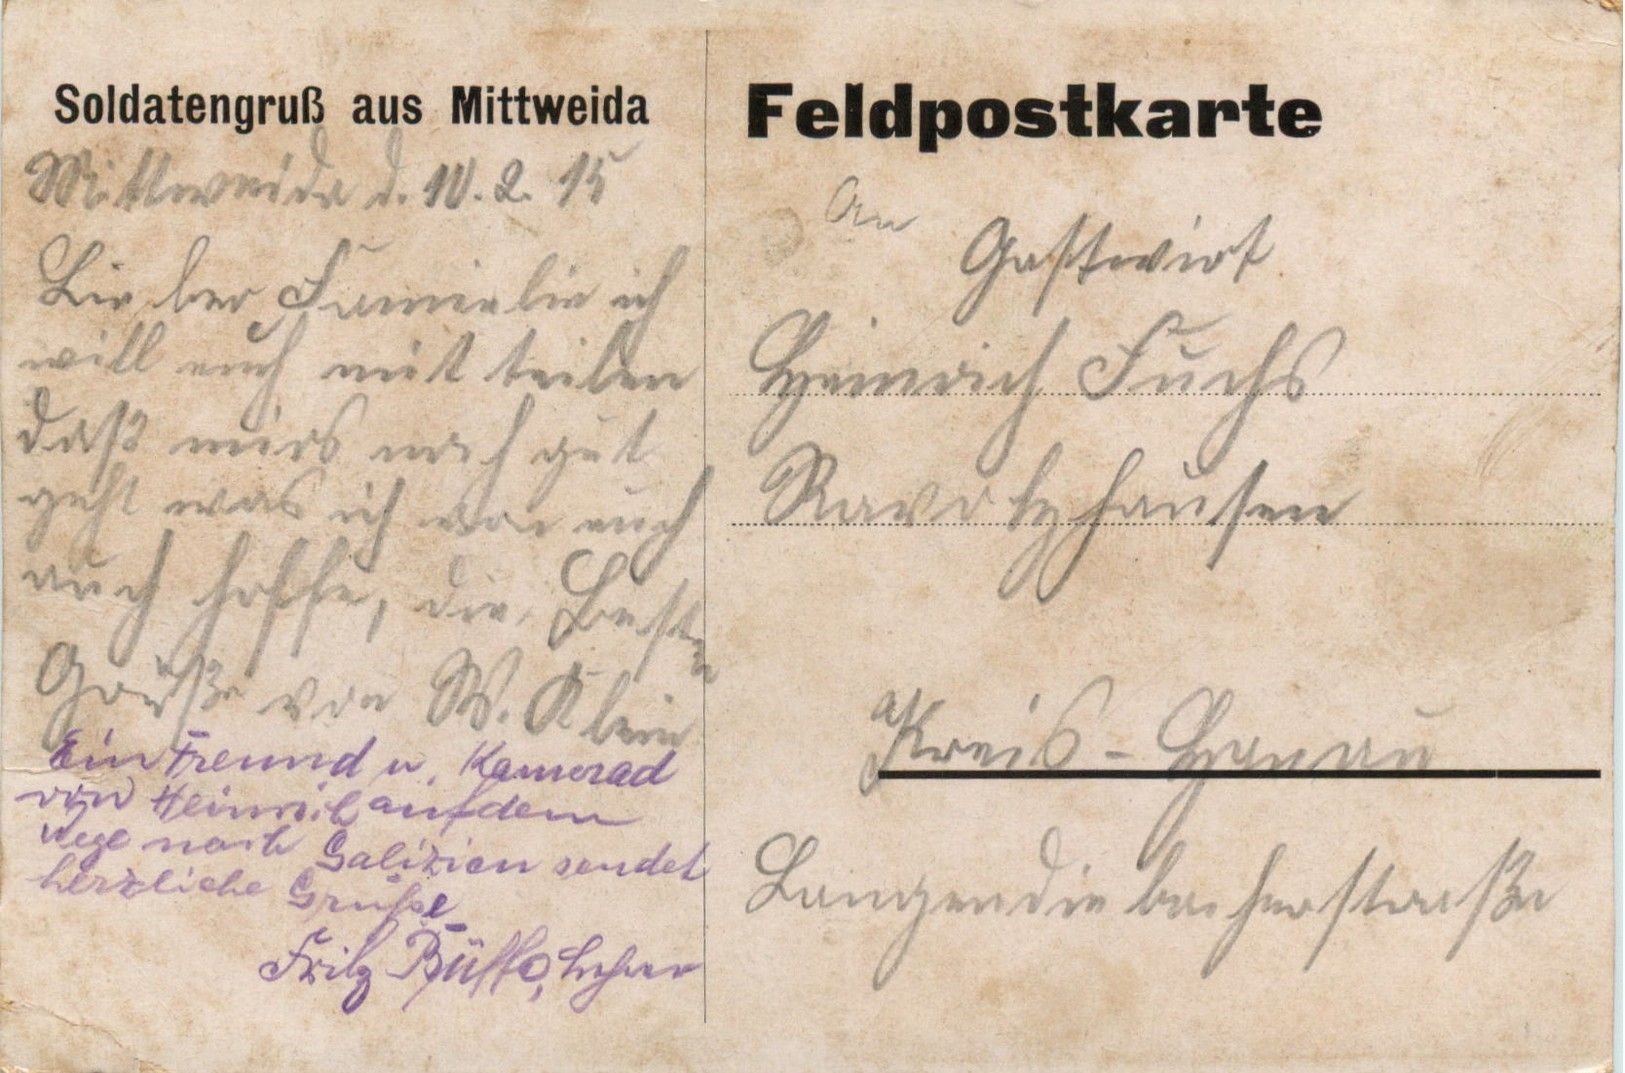 Soldatengruß aus Mittweida
Mittweida d. 10. 2. 15
Lie ber Famielie ich
will euch mit teilen
daß mirs noch gut
geht was ich von euch
auch hoffe, die Besten
Grüße von W. Klein
Ein Freund u. Kamerad
von Heinrich auf dem
Wege nach Galizien sendet
herzliche Grüße
Fritz Büffo, Lehrer
Feldpostkarte
An
Gastwirt
Heinrich Fuchs
Ravoltzhausen
Kreis - Hanau
Langendiebacherstraße